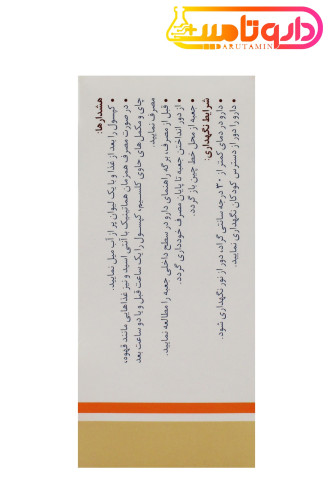 داروتامین
DARUTAMIN
هشدارها:
• کپسول را بعد از غذا و با یک لیوان پر از آب میل نمایید.
• در صورت مصرف همزمان هماتینیک با آنتی اسید و نیز غذاهایی مانند قهوه،
چای و مکمل های حاوی کلسیم، کپسول را یک ساعت قبل و یا دو ساعت بعد
مصرف نمایید.
• قبل از مصرف، برگه راهنمای دارو در سطح داخلی جعبه را مطالعه نمایید.
• از دور انداختن جعبه تا پایان مصرف خودداری گردد.
• جعبه از محل خط چین باز گردد.
شرایط نگهداری:
• دارو در دمای کمتر از ۳۰ درجه سانتی گراد، دور از نور نگهداری شود.
• دارو را دور از دسترس کودکان نگهداری نمایید.